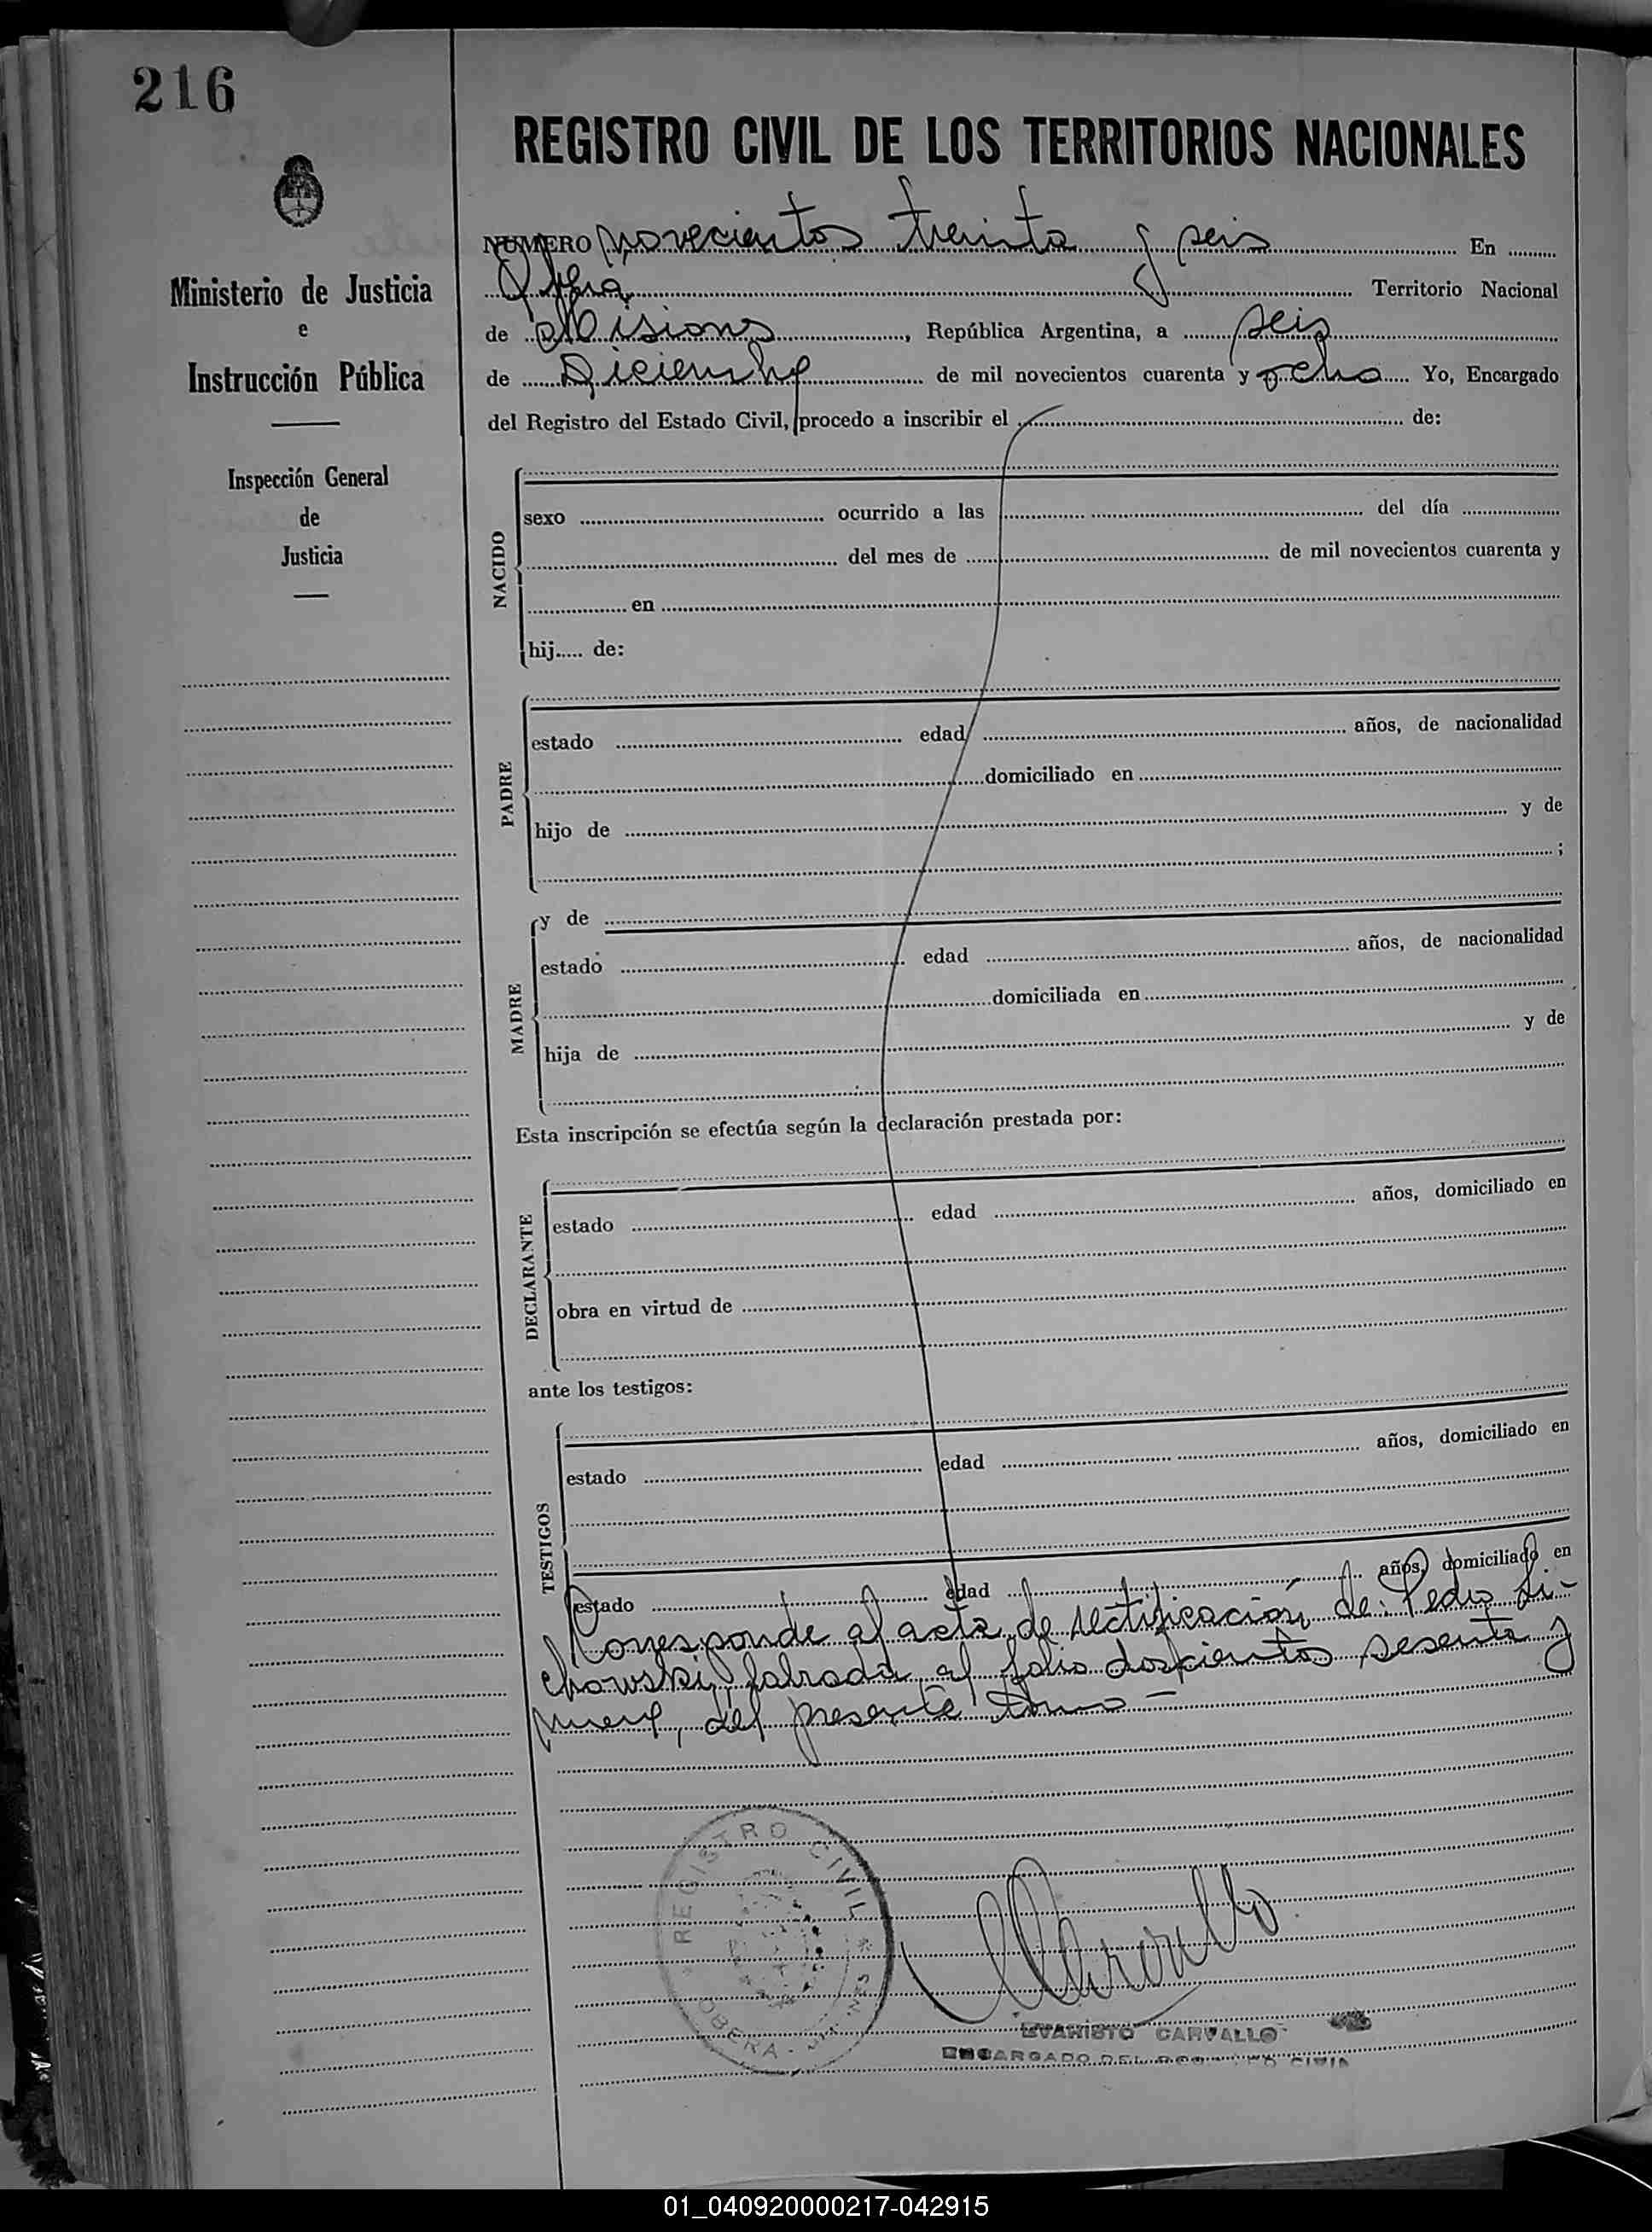 216
Ministerio de Justicia
e
Instrucción Pública
Inspección General
de
Justicia
REGISTRO CIVIL DE LOS TERRITORIOS NACIONALES
NUMERO novecientos treinta y seis En
Oberá Territorio Nacional
de Misiones, República Argentina, a seis
de Diciembre de mil novecientos cuarenta y ocho Yo, Encargado
del Registro del Estado Civil, procedo a inscribir el de:
NACIDO
sexo ocurrido a las del día
del mes de de mil novecientos cuarenta y
en
hij..... de:
PADRE
estado edad años, de nacionalidad
domiciliado en
hijo de y de
;
MADRE
y de
estado edad años, de nacionalidad
domiciliada en
hija de y de
Esta inscripción se efectúa según la declaración prestada por:
DECLARANTE
estado edad años, domiciliado en
obra en virtud de
ante los testigos:
TESTIGOS
estado edad años, domiciliado en
estado edad años, domiciliado en
Corresponde al acta de rectificación de: Pedro Li-
chowski, labrada al folio doscientos sesenta y
nueve, del presente tomo -
REGISTRO CIVIL
OBERA
EVARISTO CARVALLO
ENCARGADO DEL REGISTRO CIVIL
01_040920000217-042915